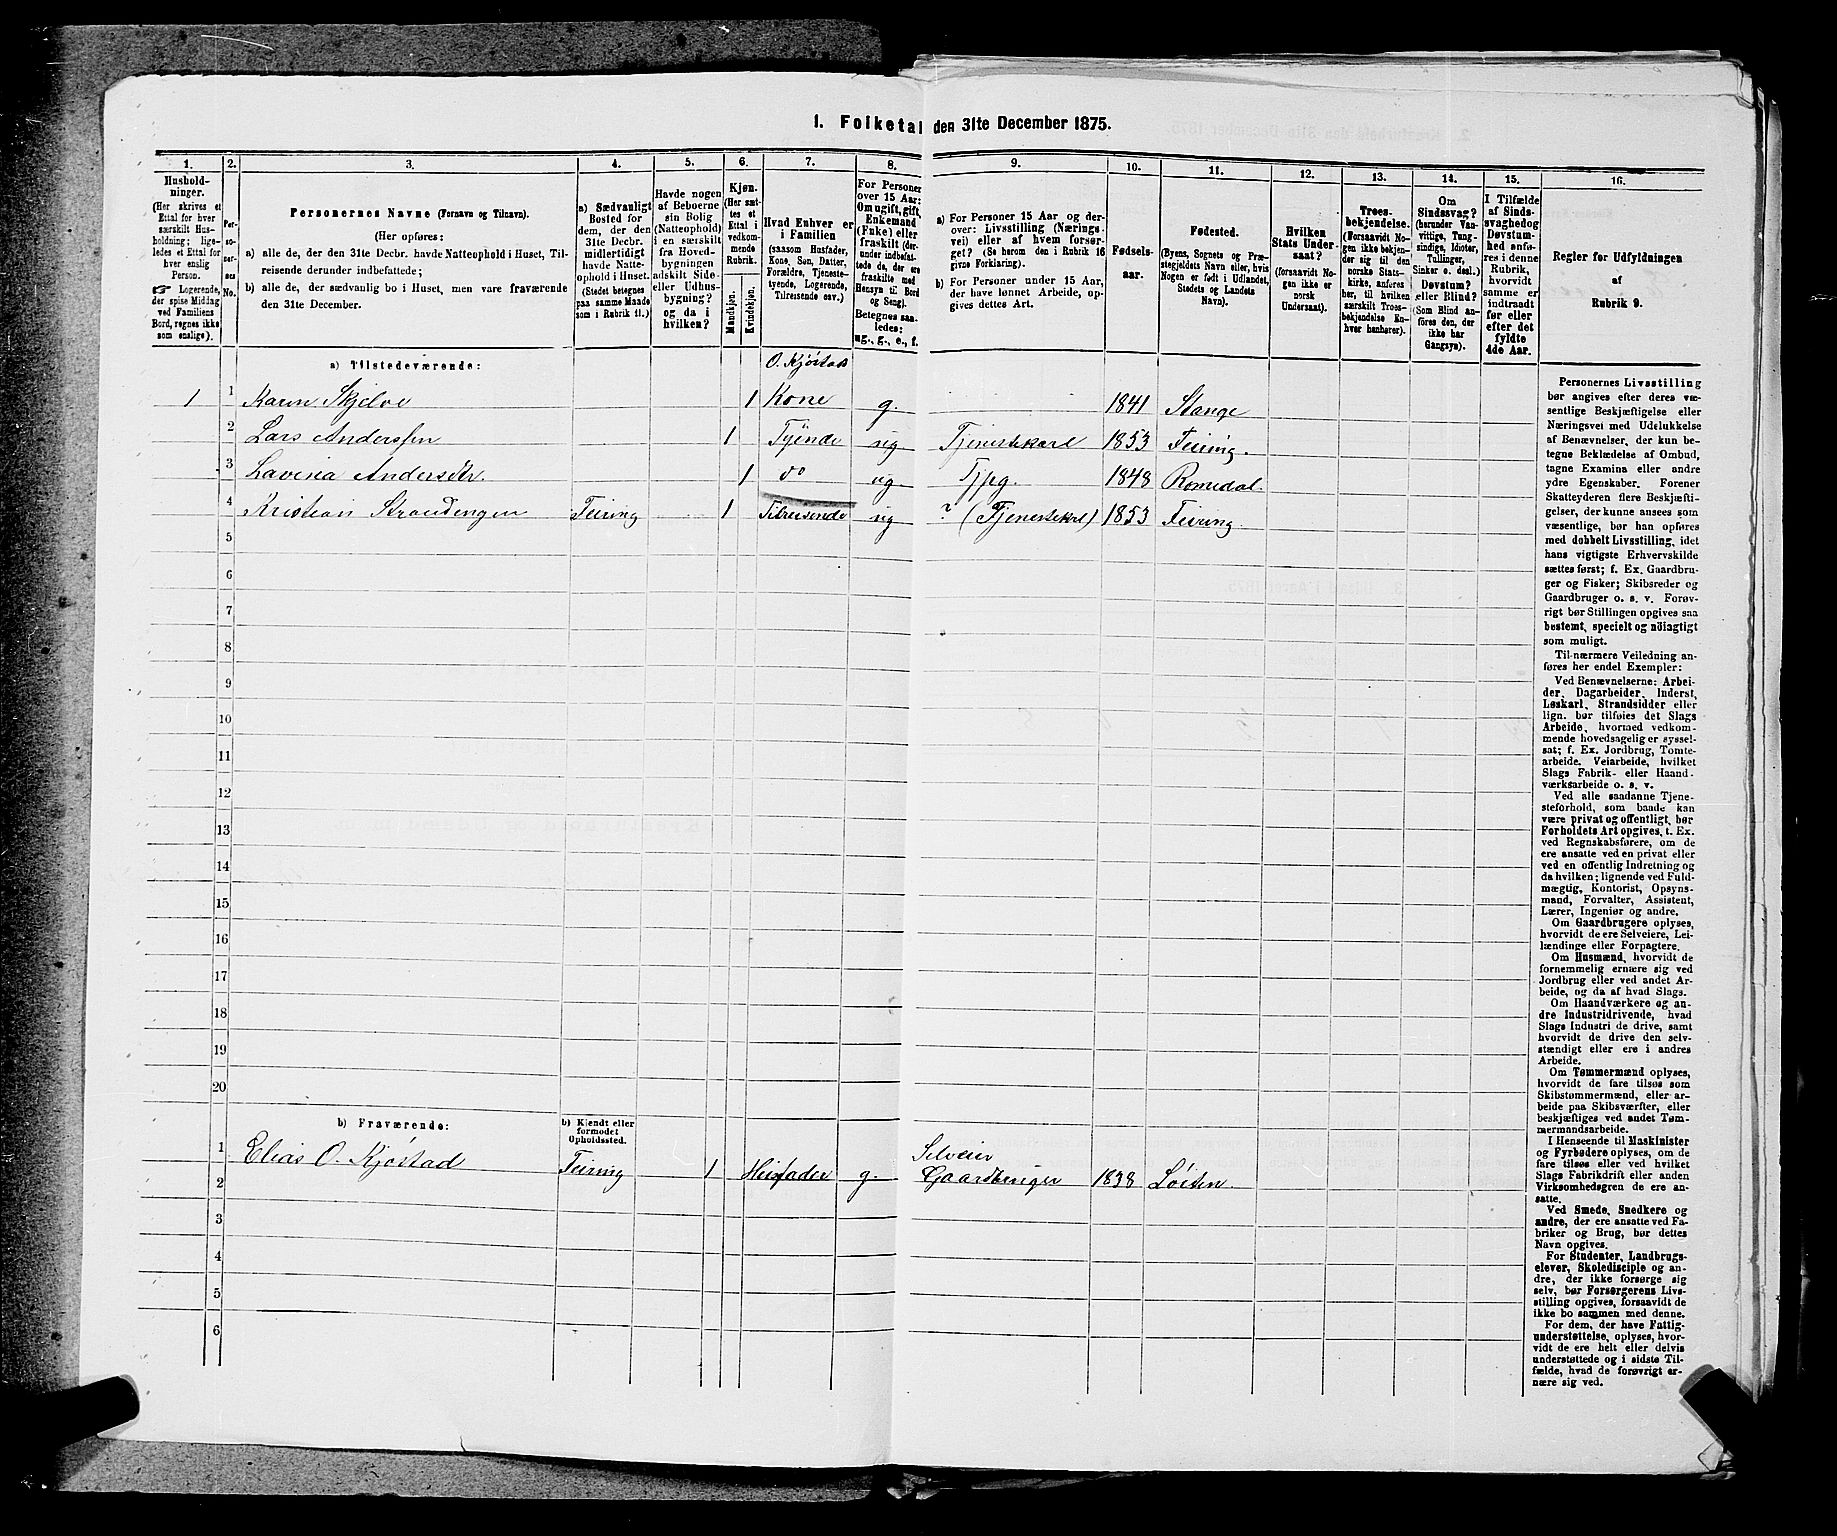 1. Folketal den 31te December 1875.
1. 2. 3. 4. 5. 6. 7. 8. 9. 10. 11. 12. 13. 14. 15. 16.
Hushold-
ninger.
(Her skrives et
Ettal for hver
særskilt Hus-
holdning; lige-
ledes et Ettal for
hver enslig
Person.
☞ Logerende,
der spise Middag
ved Familiens
Bord, regnes ikke
som enslige).
Per-
so-
ner-
nes
No.
Personernes Navne (Fornavn og Tilnavn).
(Her opføres:
a) alle de, der den 31te Decbr. havde Natteophold i Huset, Til-
reisende derunder indbefattede;
b) alle de, der sædvanlig bo i Huset, men vare fraværende
den 31te December.
a) Sædvanligt
Bosted for
dem, der den
31te Decbr.
midlertidigt
havde Natte-
ophold i Huset.
(Stedet betegnes
paa samme Maade
som i Rubrik 11.)
Havde nogen
af Beboerne
sin Bolig
(Natteophold)
i en særskilt
fra Hoved-
bygningen
adskilt Side-
eller Udhus-
bygning?
og da i
hvilken?
Kjøn.
(Her sæt-
tes et
Ettal i
vedkom-
mende
Rubrik.
Mandkjøn.
Kvindekjøn.
Hvad Enhver er
i Familien
(saasom Husfader,
Kone, Søn, Datter,
Forældre, Tjeneste-
tyende, Logerende,
Tilreisende osv.)
For Personer
over 15 Aar:
Om ugift, gift,
Enkemand
(Enke) eller
fraskilt (der-
under indbefat-
tede de, der ere
fraskilte med
Hensyn til Bord
og Seng).
Betegnes saa-
ledes:
ug., g., e., f.
a) For Personer 15 Aar og der-
over: Livsstilling (Nærings-
vei) eller af hvem forsør-
get? (Se herom den i Rubrik 16
givne Forklaring).
b) For Personer under 15 Aar,
der have lønnet Arbeide, op-
gives dettes Art.
Fødsels-
aar.
Fødested.
(Byens, Sognets og Præ-
stegjeldets Navn eller, hvis
Nogen er født i Udlandet,
Stedets og Landets
Navn).
Hvilken
Stats Under-
saat?
(forsaavidt No-
gen ikke er
norsk
Undersaat).
Troes-
bekjendelse.
(Forsaavidt No-
gen ikke bekjen-
der sig til den
norske Stats-
kirke, anføres
her, til hvilken
særskilt Troes-
bekjendelse En-
hver henhører).
Om
Sindssvag?
(herunder Van-
vittige, Tung-
sindige, Idioter,
Tullinger,
Sinker o. desl.)
Døvstum?
eller Blind?
(Som Blind an-
føres den, der
ikke har
Gangsyn).
I Tilfælde
af Sinds-
svaghed og
Døvstum-
hed anfø-
res i denne
Rubrik,
hvorvidt
samme er
indtraadt
før eller
efter det
fyldte
4de Aar.
Regler for Udfyldningen
af
Rubrik 9.
a) Tilstedeværende:
O. Kjöstad
1 1 Karen Skjelve 1 Kone g. 1841 Stange
2 Lars Anderssen 1 Tyende ug Tjenestekarl 1853 Feiring.
3 Lavina Andersdtr. 1 do ug Tjpg. 1848 Romedal.
4 Kristian Strandengen Feiring 1 Tilreisende ug ? (Tjenestekrl) 1853 Feiring
5
6
7
8
9
10
11
12
13
14
15
16
17
18
19
20
b) Fraværende:
b) Kjendt eller
formodet
Opholdssted.
1 Elias O. Kjöstad Feiring 1 Husfader g. Selveier
Gaardbruger 1838 Löiten.
2
3
4
5
6
Personernes Livsstilling
bør angives efter deres væ-
sentlige Beskjæftigelse eller
Næringsvei med Udelukkelse
af Benævnelser, der kun be-
tegne Beklædelse af Ombud,
tagne Examina eller andre
ydre Egenskaber. Forener
Skatteyderen flere Beskjæfti-
gelser, der kunne ansees som
væsentlige, bør han opføres
med dobbelt Livsstilling, idet
hans vigtigste Erhvervskilde
sættes først; f. Ex. Gaardbru-
ger og Fisker; Skibsreder og
Gaardbruger o. s. v. Forøv-
rigt bør Stillingen opgives saa
bestemt, specielt og nöiagtigt
som muligt.
Til nærmere Veiledning an-
føres her endel Exempler:
Ved Benævnelserne: Arbei-
der, Dagarbeider, Inderst,
Løskarl, Strandsidder eller
lign. bør tilføies det Slags
Arbeide, hvormed vedkom-
mende hovedsagelig er syssel-
sat; f. Ex. Jordbrug, Tomte-
arbeide, Veiarbeide, hvilket
Slags Fabrik- eller Haand-
værksarbeide o. s. v.
Ved alle saadanne Tjene-
steforhold, som baade kan
være privat og offentligt, bør
Forholdets Art opgives, t. Ex.
ved Regnskabsførere, om de
ere ansatte ved en privat eller
ved en offentlig Indretning og
da hvilken; lignende ved Fuld-
mægtig, Kontorist, Opsyns-
mand, Forvalter, Assistent,
Lærer, Ingeniør og andre.
Om Gaardbrugere oplyses,
hvorvidt de ere Selveiere, Lei-
lændinge eller Forpagtere.
Om Husmænd, hvorvidt de
fornemmelig ernære sig ved
Jordbrug eller ved andet Ar-
beide, og da af hvad Slags.
Om Haandværkere og an-
dre Industridrivende, hvad
Slags Industri de drive, samt
hvorvidt de drive den selv-
stændigt eller ere i andres
Arbeide.
Om Tømmermænd oplyses,
hvorvidt de fare tilsøs som
Skibstømmermænd, eller ar-
beide paa Skibsværfter, eller
beskjæftiges ved andet Tøm-
mermandsarbeide.
I Henseende til Maskinister
og Fyrbødere oplyses, om de
fare tilsøs eller ved hvilket
Slags Fabrikdrift eller anden
Virksomhedsgren de ere an-
satte.
Ved Smede, Snedkere og
andre, der ere ansatte ved Fa-
briker og Brug, bør dettes
Navn opgives.
For Studenter, Landbrugs-
elever, Skoledisciple og an-
dre, der ikke forsørge sig
selv, bør Forsørgerens Livs-
stilling opgives, forsaavidt de
ikke bo sammen med denne.
For dem, der have Fattig-
understøttelse, oplyses, hvor-
vidt de ere helt eller delvis
understøttede og i sidste Til-
fælde, hvad de forøvrigt er-
nære sig ved.